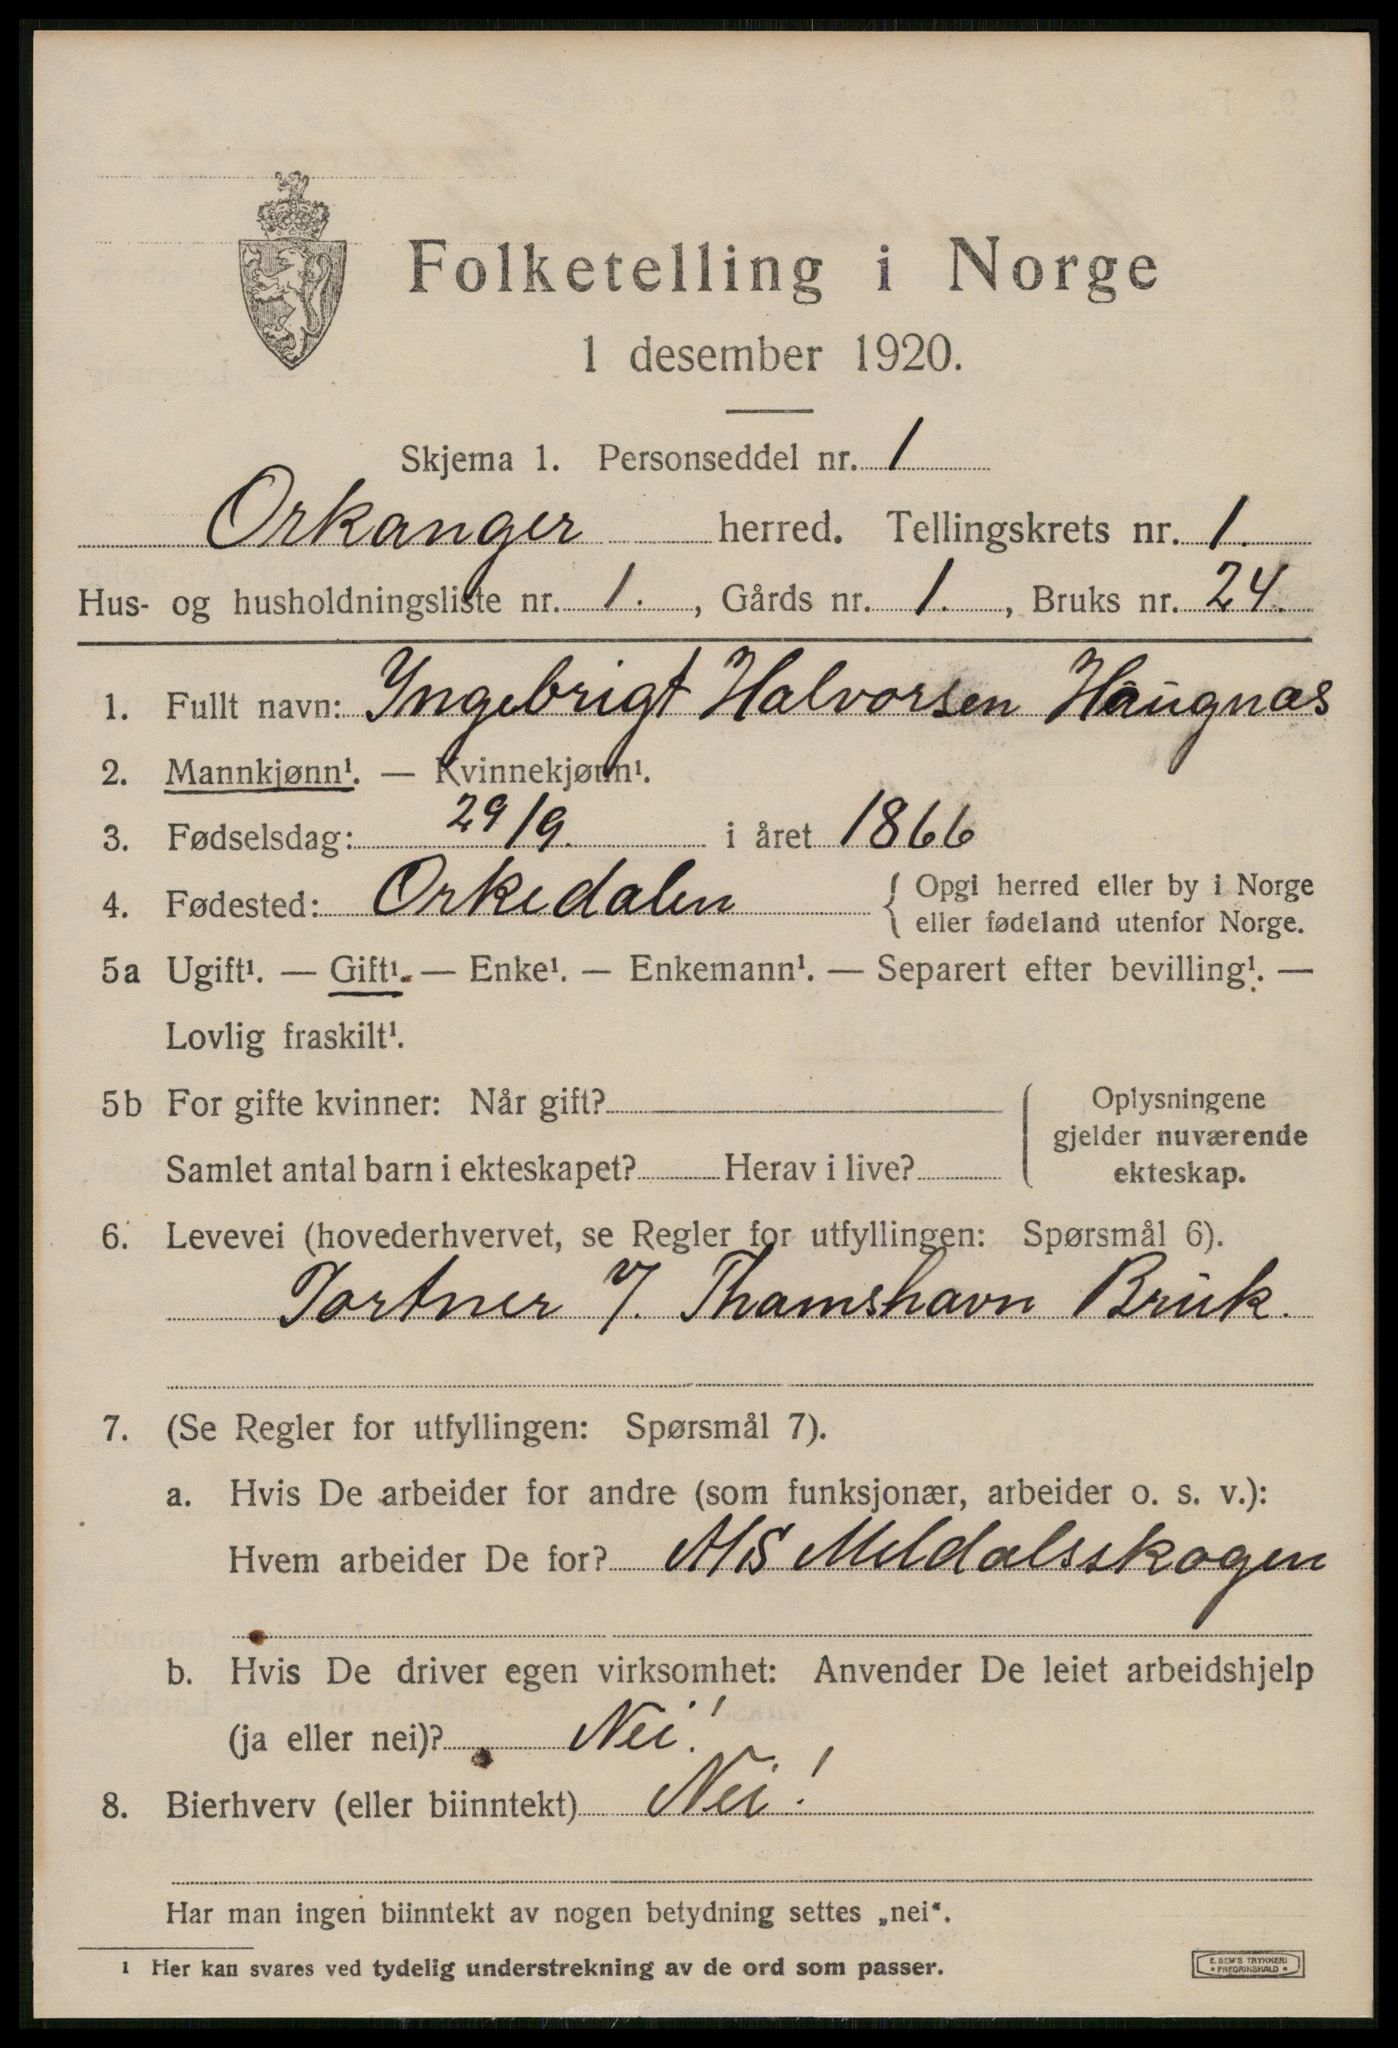 Folketelling i Norge
1 desember 1920.
Skjema 1. Personseddel nr. 1
Orkanger herred. Tellingskrets nr. 1.
Hus- og husholdningsliste nr. 1. , Gårds nr. 1. , Bruks nr. 24.
1. Fullt navn: Yngebrigt Halvorsen Haugnæs
2. Mannkjønn¹. — Kvinnekjønn¹.
3. Fødselsdag: 29/9. i året 1866
4. Fødested: Orkedalen { Opgi herred eller by i Norge
eller fødeland utenfor Norge.
5a Ugift¹. — Gift¹. — Enke¹. — Enkemann¹. — Separert efter bevilling¹. —
Lovlig fraskilt¹.
5b For gifte kvinner: Når gift?
Samlet antal barn i ekteskapet? Herav i live?
Oplysningene
gjelder nuværende
ekteskap.
6. Levevei (hovederhvervet, se Regler for utfyllingen: Spørsmål 6).
Tortner Thamshavn Bruk.
7. (Se Regler for utfyllingen: Spørsmål 7).
a. Hvis De arbeider for andre (som funksjonær, arbeider o. s. v.):
Hvem arbeider De for? A/S Meldalsskogen
b. Hvis De driver egen virksomhet: Anvender De leiet arbeidshjelp
(ja eller nei)? Nei!
8. Bierhverv (eller biinntekt) Nei!
Har man ingen biinntekt av nogen betydning settes „nei“.
¹ Her kan svares ved tydelig understrekning av de ord som passer.
E. SEM'S TRYKKERI
• FREDRIKSHALD •